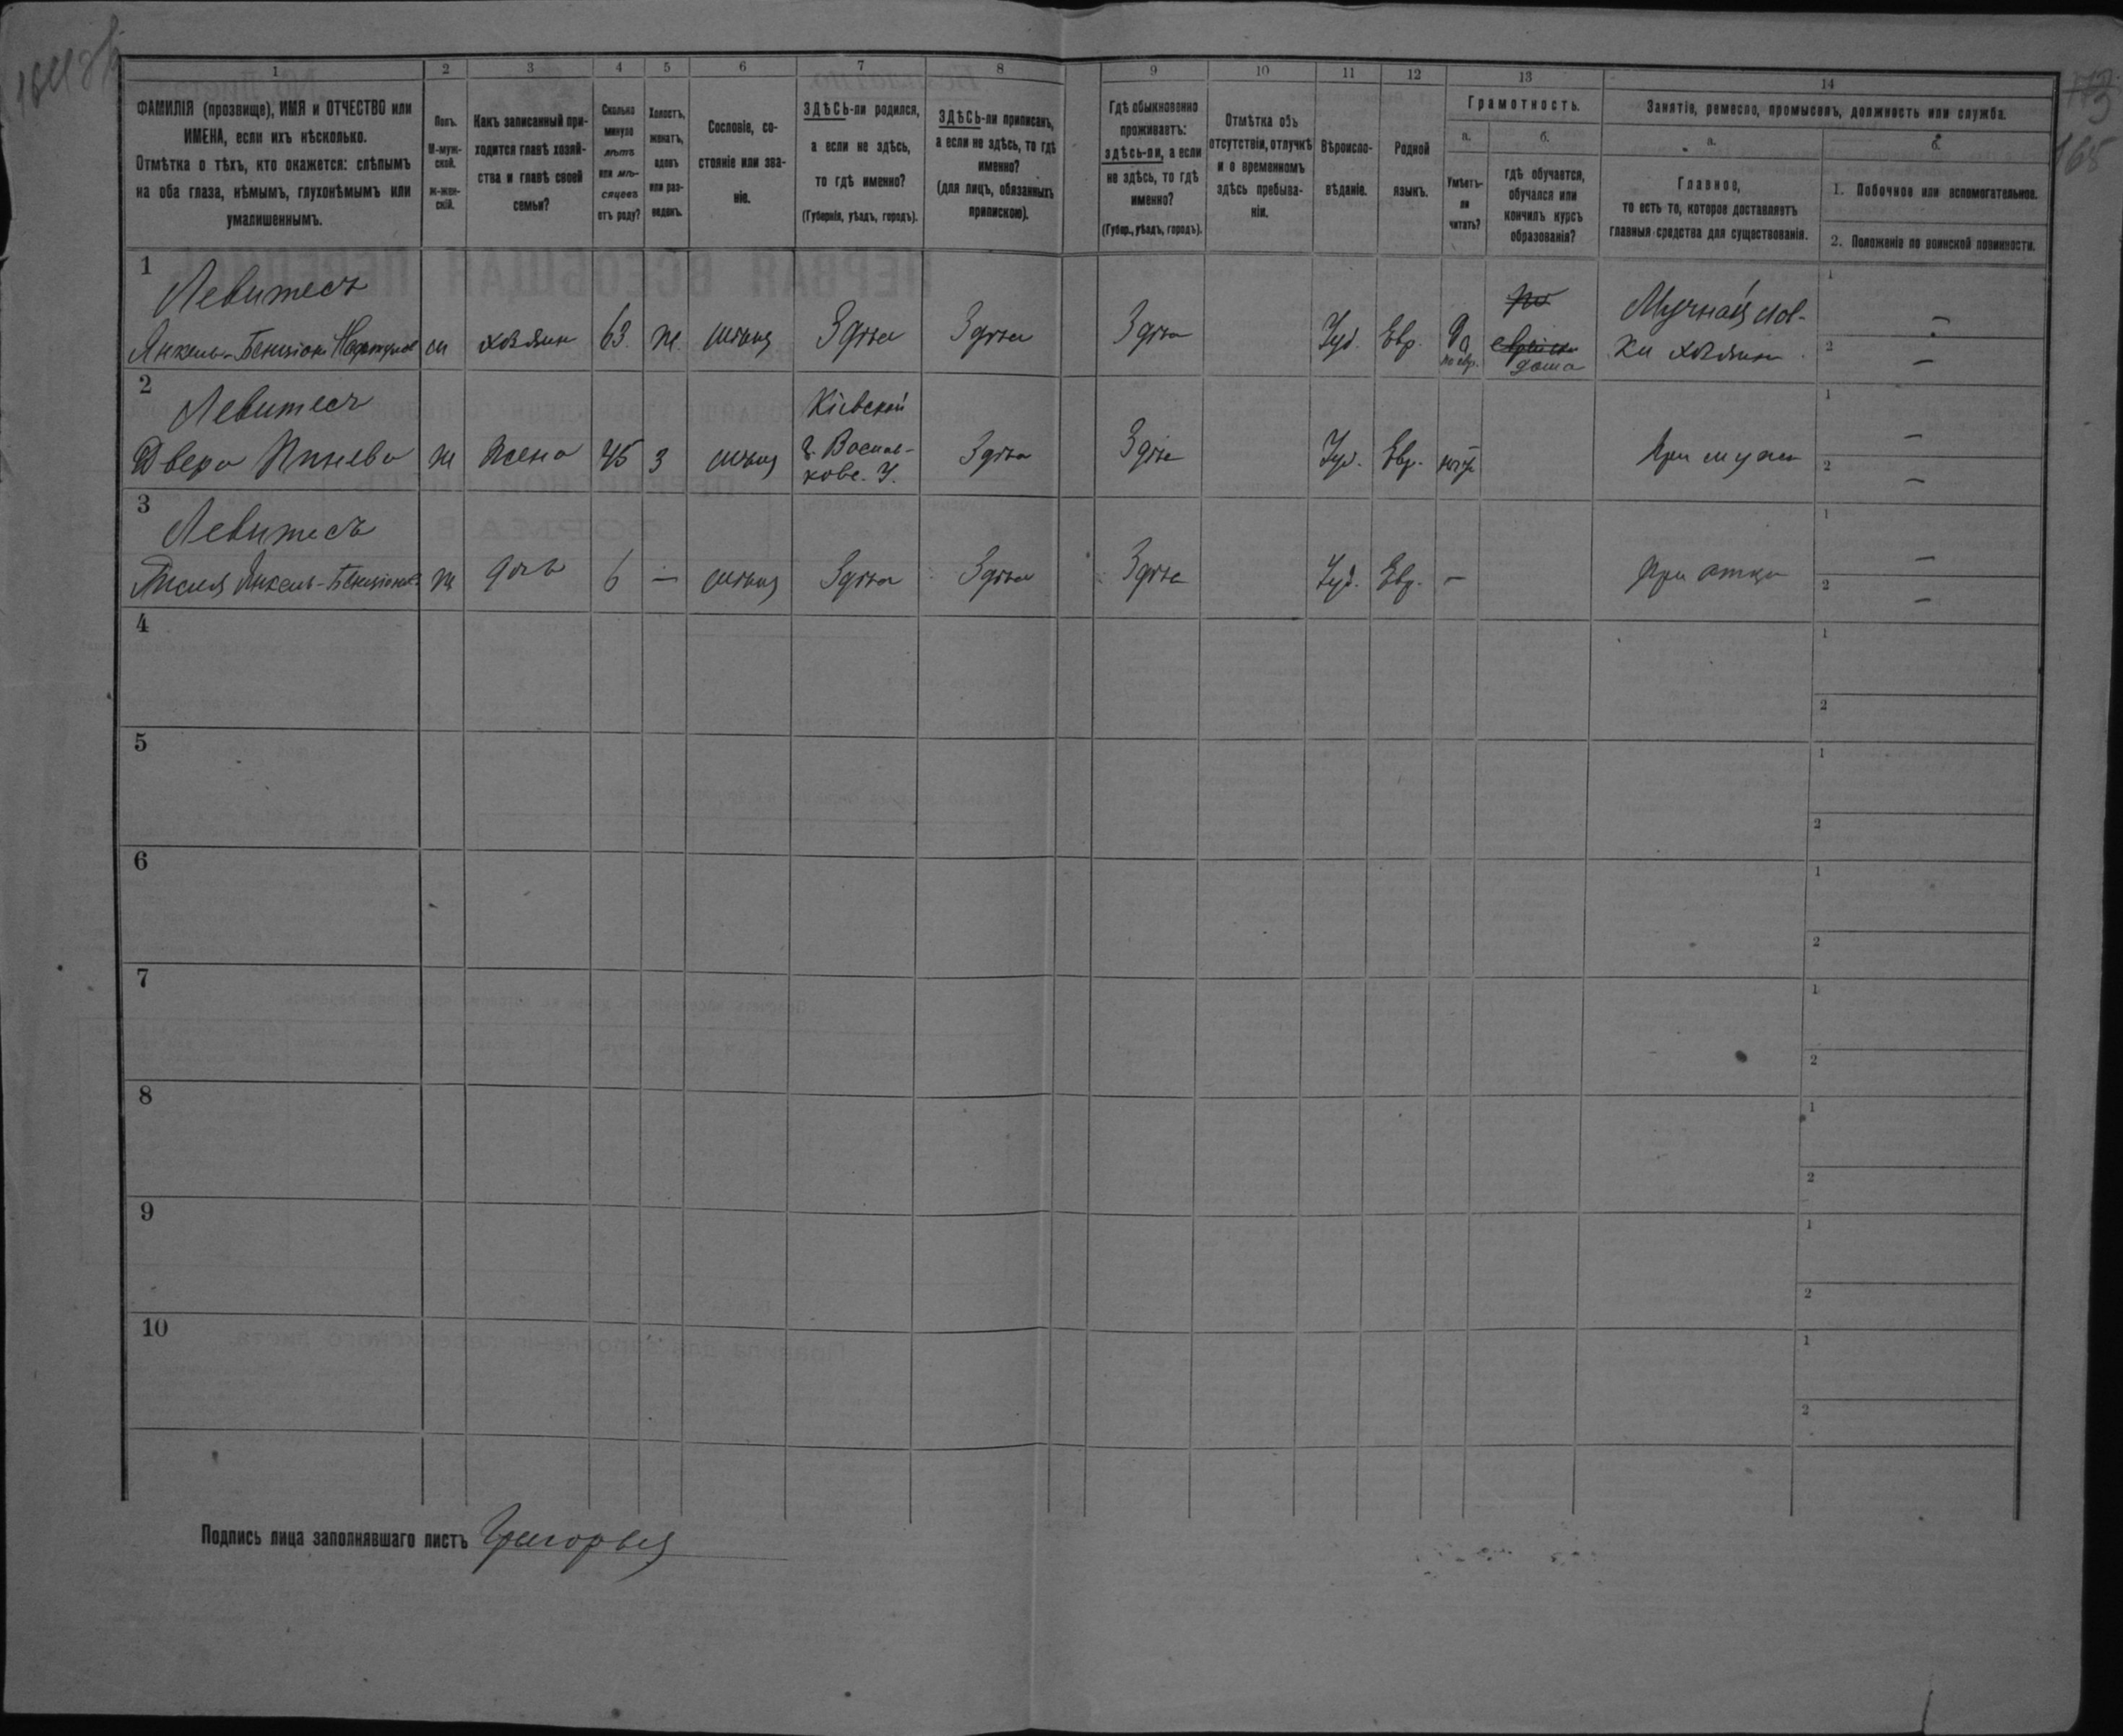 1 2 3 4 5 6 7 8 9 10 11 12 13 14
ФАМИЛІЯ (прозвище), ИМЯ и ОТЧЕСТВО или
ИМЕНА, если ихъ нѣсколько.
Отмѣтка о тѣхъ, кто окажется: слѣпымъ
на оба глаза, нѣмымъ, глухонѣмымъ или
умалишеннымъ.
Полъ.
М-муж-
ской.
ж-жен-
скій.
Какъ записанный при-
ходится главѣ хозяй-
ства и главѣ своей
семьи?
Сколько
минуло
лѣтъ
или мѣ-
сяцевъ
отъ роду?
Холостъ,
женатъ,
вдовъ
или раз-
веденъ.
Сословіе, со-
стояніе или зва-
ніе.
ЗДѢСЬ-ли родился,
а если не здѣсь,
то гдѣ именно?
(Губернія, уѣздъ, городъ).
ЗДѢСЬ-ли приписанъ,
а если не здѣсь, то гдѣ
именно?
(для лицъ, обязанныхъ
припискою).
Гдѣ обыкновенно
проживаетъ:
здѣсь-ли, а если
не здѣсь, то гдѣ
именно?
(Губер., уѣздъ, городъ).
Отмѣтка объ
отсутствіи, отлучкѣ
и о временномъ
здѣсь пребыва-
ніи.
Вѣроиспо-
вѣданіе.
Родной
языкъ.
Грамотность.
а.
Умѣетъ-
ли
читать?
б.
гдѣ обучается,
обучался или
кончилъ курсъ
образованія?
Занятіе, ремесло, промыселъ, должность или служба.
а.
Главное,
то есть то, которое доставляетъ
главныя средства для существованія.
б.
1. Побочное или вспомогательное.
2. Положеніе по воинской повинности.
1
Левитесъ
Янкель-Бенціонъ м хозяин 63. ж. Здѣсь Здѣсь Здѣсь Іуд. Евр. Да
по евр.
по
дома
Мучной лав-
ки хозяин
1 –
2 –
2
Левитесъ
Двера Пинева ж Жена 45 з Кіевской
г. Василь-
ковс. У.
Здѣсь Здѣсь Іуд. Евр. нѣт При мужѣ
1 –
2 –
3
Левитесъ
Янкель-Бенціонов. ж дочь 6 – Здѣсь Здѣсь Здѣсь Іуд. Евр. – При отцѣ
1 –
2 –
4 1
2
5 1
2
6 1
2
7 1
2
8 1
2
9 1
2
10 1
2
Подпись лица заполнявшаго листъ
165